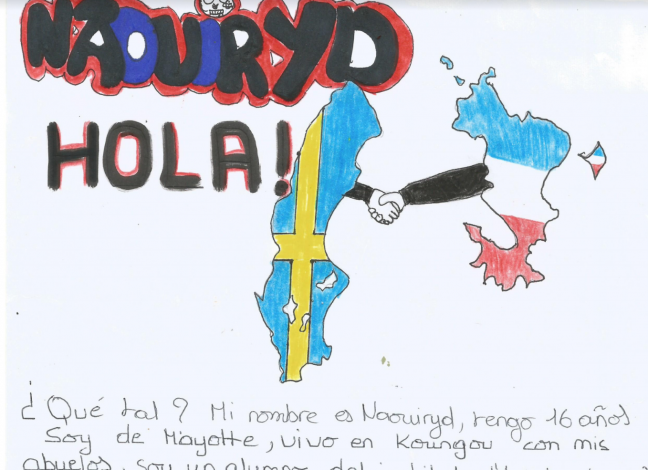 NAOUIRYD
HOLA!
¿ Qué tal ? Mi nombre es Naouiryd, tengo 16 años
Soy de Mayotte, vivo en Koungou con mis
abuelos, soy un alumno del